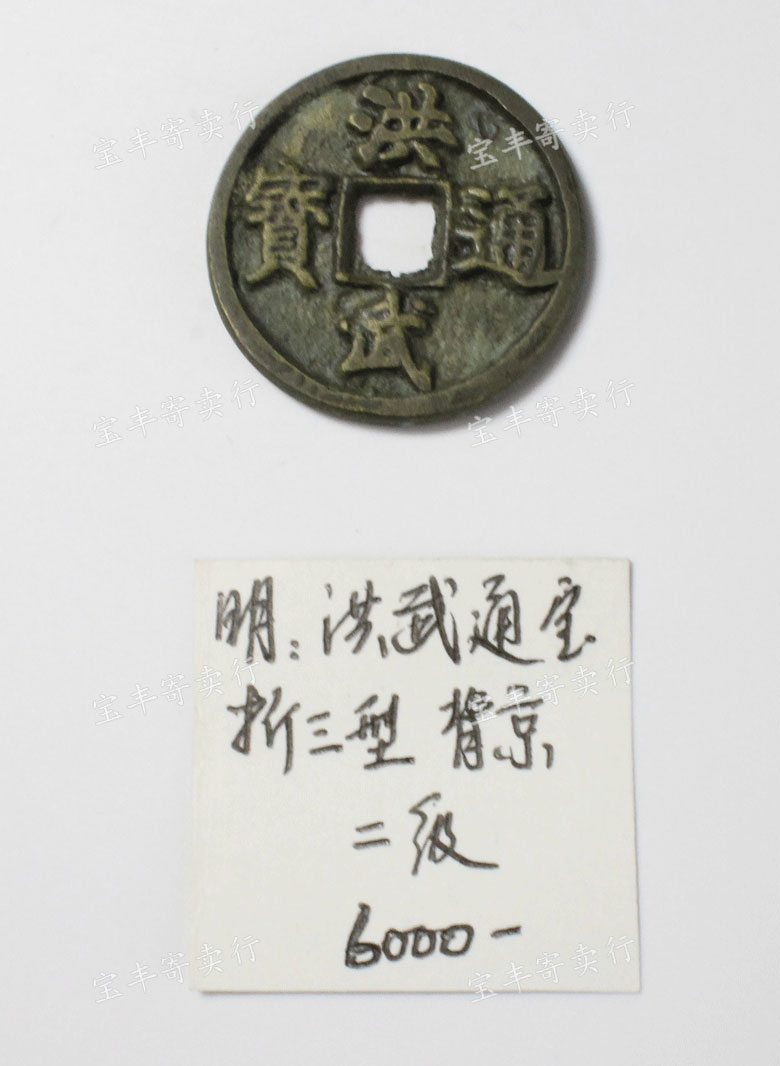 洪武通寶
明:洪武通宝
折三型 背京
二级
6000-
宝丰寄卖行
宝丰寄卖行
宝丰寄卖行
宝丰寄卖行
宝丰寄卖行
宝丰寄卖行
宝丰寄卖行
宝丰寄卖行